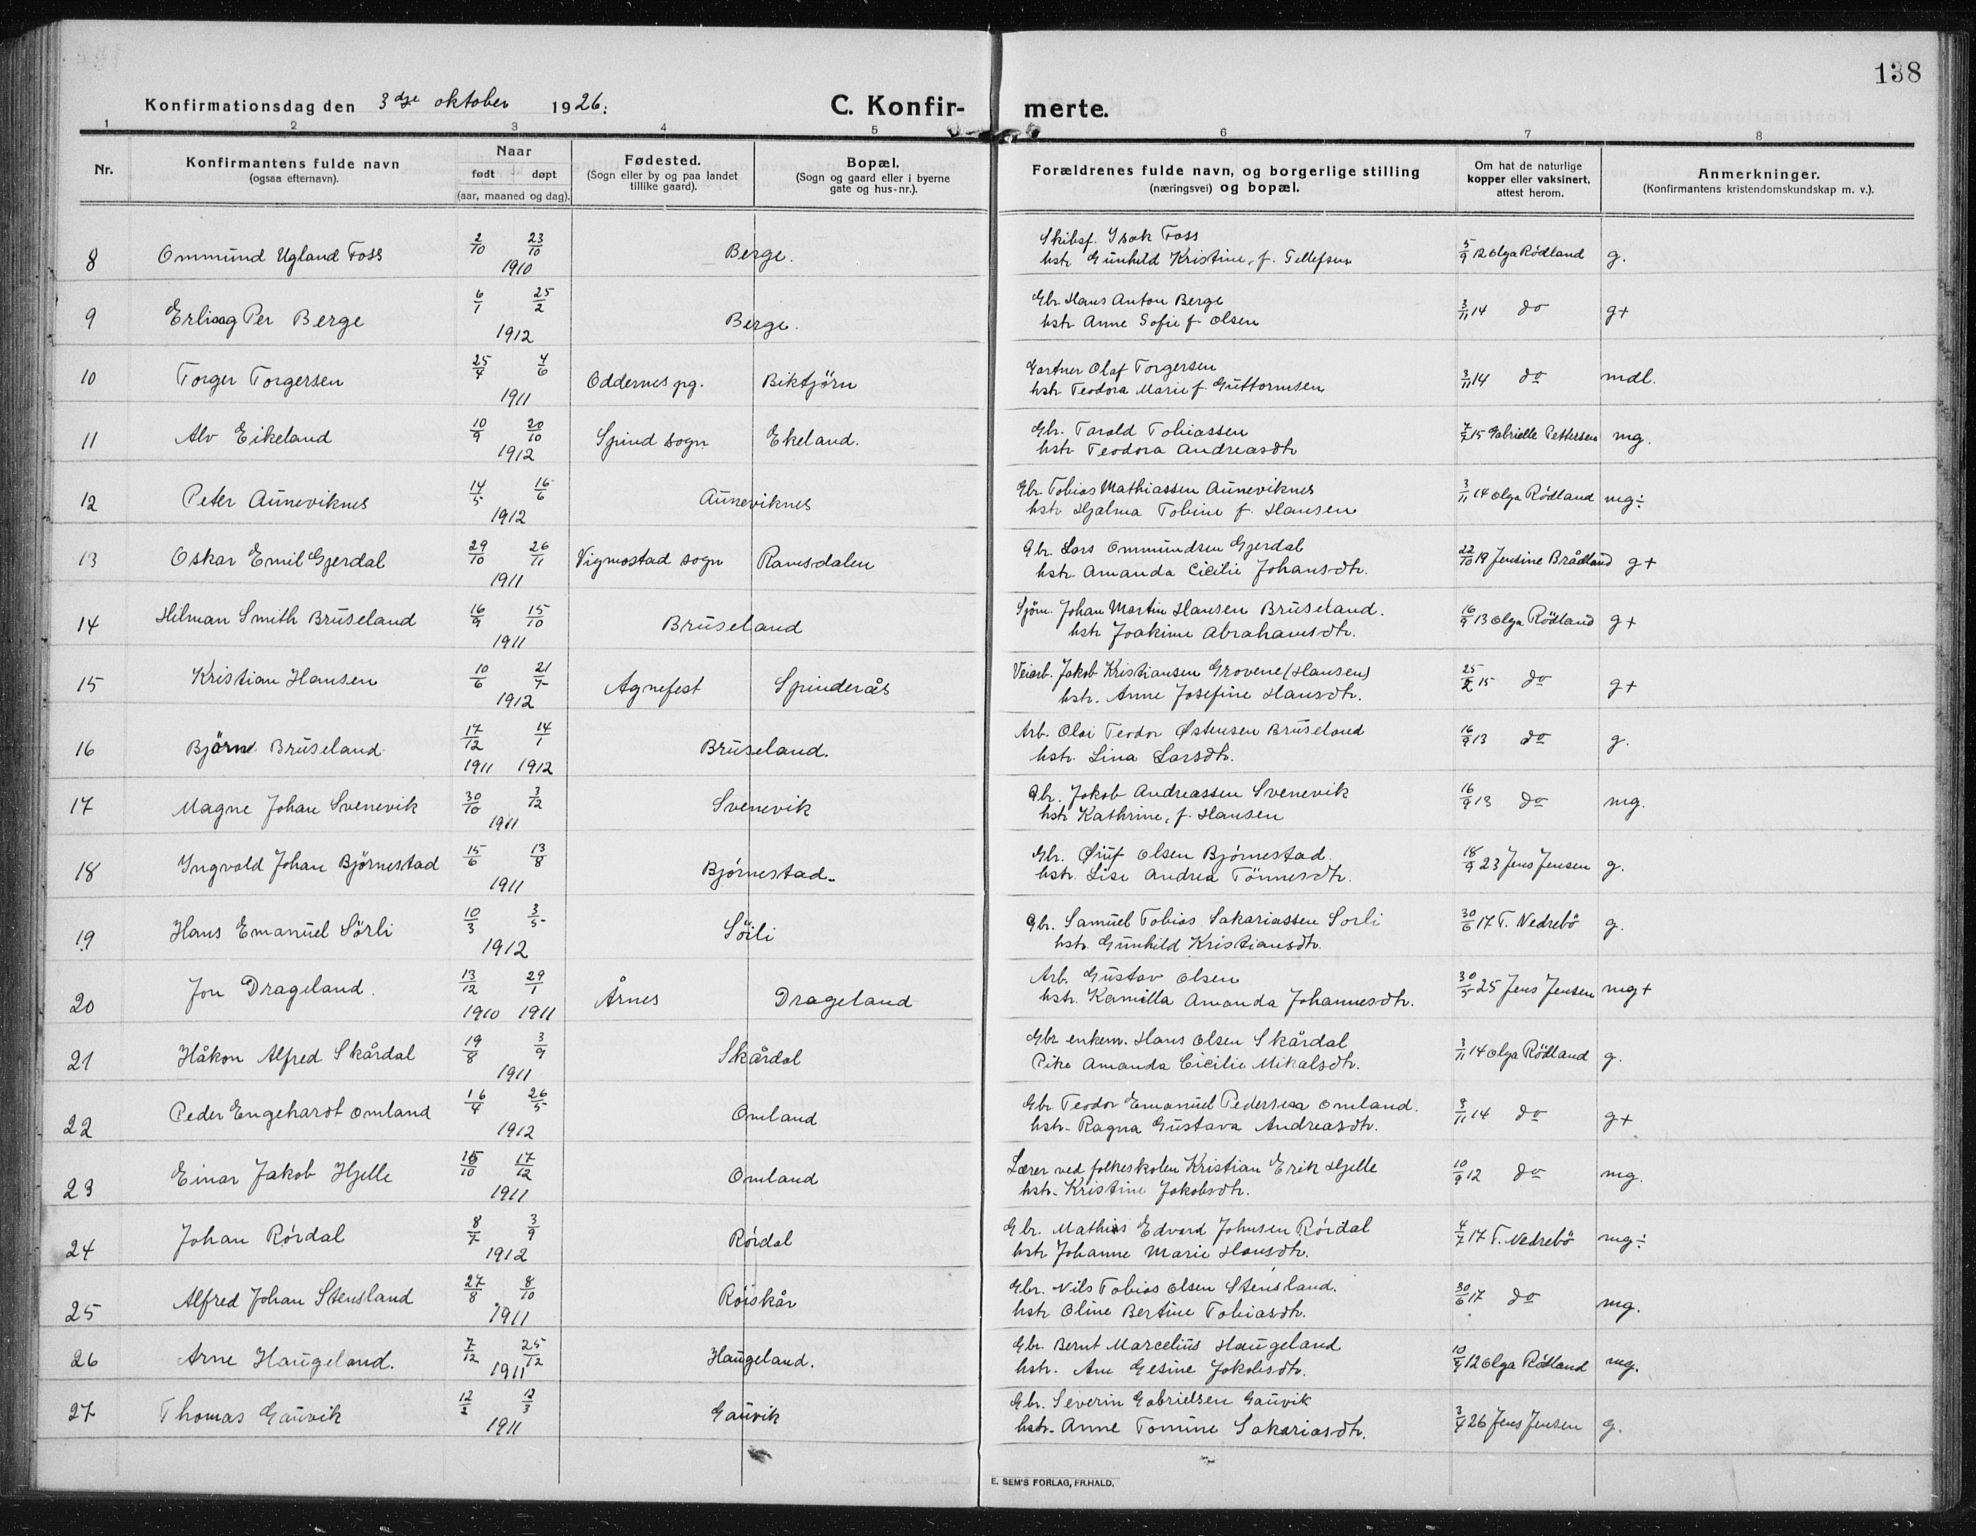 138
Konfirmationsdag den 3dje oktober 1926. C. Konfir- merte.
1 2 3 4 5 6 7 8
Nr. Konfirmantens fulde navn (ogsaa efternavn). Naar født døpt (aar, maaned og dag). Fødested. (Sogn eller by og paa landet tillike gaard). Bopæl. (Sogn og gaard eller i byerne gate og hus-nr.). Forældrenes fulde navn, og borgerlige stilling (næringsvei) og bopæl. Om hat de naturlige kopper eller vaksinert, attest herom. Anmerkninger. (Konfirmantens kristendomskundskap m. v.).
8 Ommund Ugland Foss 2/10 23/10 1910 Berge. Skibsf. Isak Foss hstr Gunhild Kristine, f. Tellefsen 5/9 12 Olga Rødland g.
9 Erling Per Berge 6/1 25/2 1912 Berge. Gbr. Hans Anton Berge hstr Anne Sofie f. Olsen 3/11 14 do g+
10 Torger Torgersen 25/4 4/6 1911 Oddernes pg. Biktjörn Gartner Olaf Torgersen hstr Teodora Marie f. Guttormsen 3/11 14 do mdl.
11 Alv Eikeland 10/9 20/10 1912 Spind sogn Ekeland. Gbr. Tarald Tobiassen hstr Teodora Andreasdtr 7/7 15 Gabrielle Pettersen mg.
12 Peter Auneviknes 14/5 16/6 1912 Auneviknes Gbr. Tobias Mathiassen Auneviknes hstr Hjalma Tobine f. Hansen 3/11 14 Olga Rødland mg÷
13 Oskar Emil Gjerdal 29/10 26/11 1911 Vigmostad sogn Ramsdalen Gbr. Lars Ommundsen Gjerdal hstr. Amanda Cicilie Johansdtr. 22/10 19 Jensine Brådland g+
14 Hilman Smith Bruseland 16/9 15/10 1911 Bruseland Sjöm. Johan Martin Hansen Bruseland. hstr Joakime Abrahamsdtr. 16/9 13 Olga Rødland g+
15 Kristian Hansen 10/6 21/7 1912 Agnefest Spinderås Veiarb. Jakob Kristiansen Grovene (Hansen) hstr. Anne Josefine Hansdtr. 25/2 15 do g+
16 Bjørne Bruseland 17/12 14/1 1911 1912 Bruseland. Arb. Olai Teodor Østensen Bruseland hstr. Lina Larsdtr. 16/9 13 do g.
17 Magne Johan Svenevik 30/10 3/12 1911 Svenevik Gbr. Jakob Andreassen Svenevik hstr Kathrine, f. Hansen 16/9 13 do mg.
18 Yngvald Johan Björnestad 15/6 13/8 1911 Bjørnestad. Gbr. Øiuf Olsen Bjørnestad. hstr. Lise Andrea Tönnesdtr. 18/9 23 Jens Jensen g.
19 Hans Emanuel Sörli 10/3 3/5 1912 Söili Gbr. Samuel Tobias Sakariassen Sorli hstr. Gunhild Kristiansdtr. 30/6 17 T. Nedrebö g.
20 Jon Drageland. 13/12 29/1 1910 1911 Årnes Drageland Arb. Gustav Olsen hstr. Kamilla Amanda Johannesdtr. 30/5 25 Jens Jensen mg+
21 Håkon Alfred Skårdal 19/8 3/9 1911 Skårdal Gbr enkem. Hans Olsen Skårdal Pike Amanda Cicilie Mikalsdtr. 3/11 14 Olga Rødland g.
22 Peder Engehardt Omland 16/4 26/5 1912 Omland Gbr. Teodor Emanuel Pedersen Omland. hstr. Ragna Gustava Andreasdtr. 3/11 14 do g+
23 Einar Jakob Hjelle 15/10 17/12 1911 Omland Lærer ved folkeskolen Kristian Erik Hjelle hstr. Kristine Jakobsdtr. 10/9 12 do mg.
24 Johan Rørdal 8/7 3/9 1912 Rørdal Gbr. Mathias Edvard Johnsen Rørdal hstr Johanne Marie Hansdtr. 4/7 17 T. Nedrebö mg÷
25 Alfred Johan Stensland 27/8 8/10 1911 Røiskår Gbr. Nils Tobias Olsen Stensland. hstr. Oline Bertine Tobiasdtr. 30/6 17 do mg.
26 Arne Haugeland. 7/12 25/12 1911 Haugeland. Gbr. Bernt Marcelius Haugeland hstr. Ane Gesine Jakobsdtr. 10/9 12 Olga Rødland mg.
27 Thomas Gauvik 12/2 12/3 1911 Gauvik Gbr. Severin Gabrielsen Gauvik hstr. Anne Tomine Sakariasdtr. 3/4 26 Jens Jensen g.
E. SEM'S FORLAG, FR.HALD.